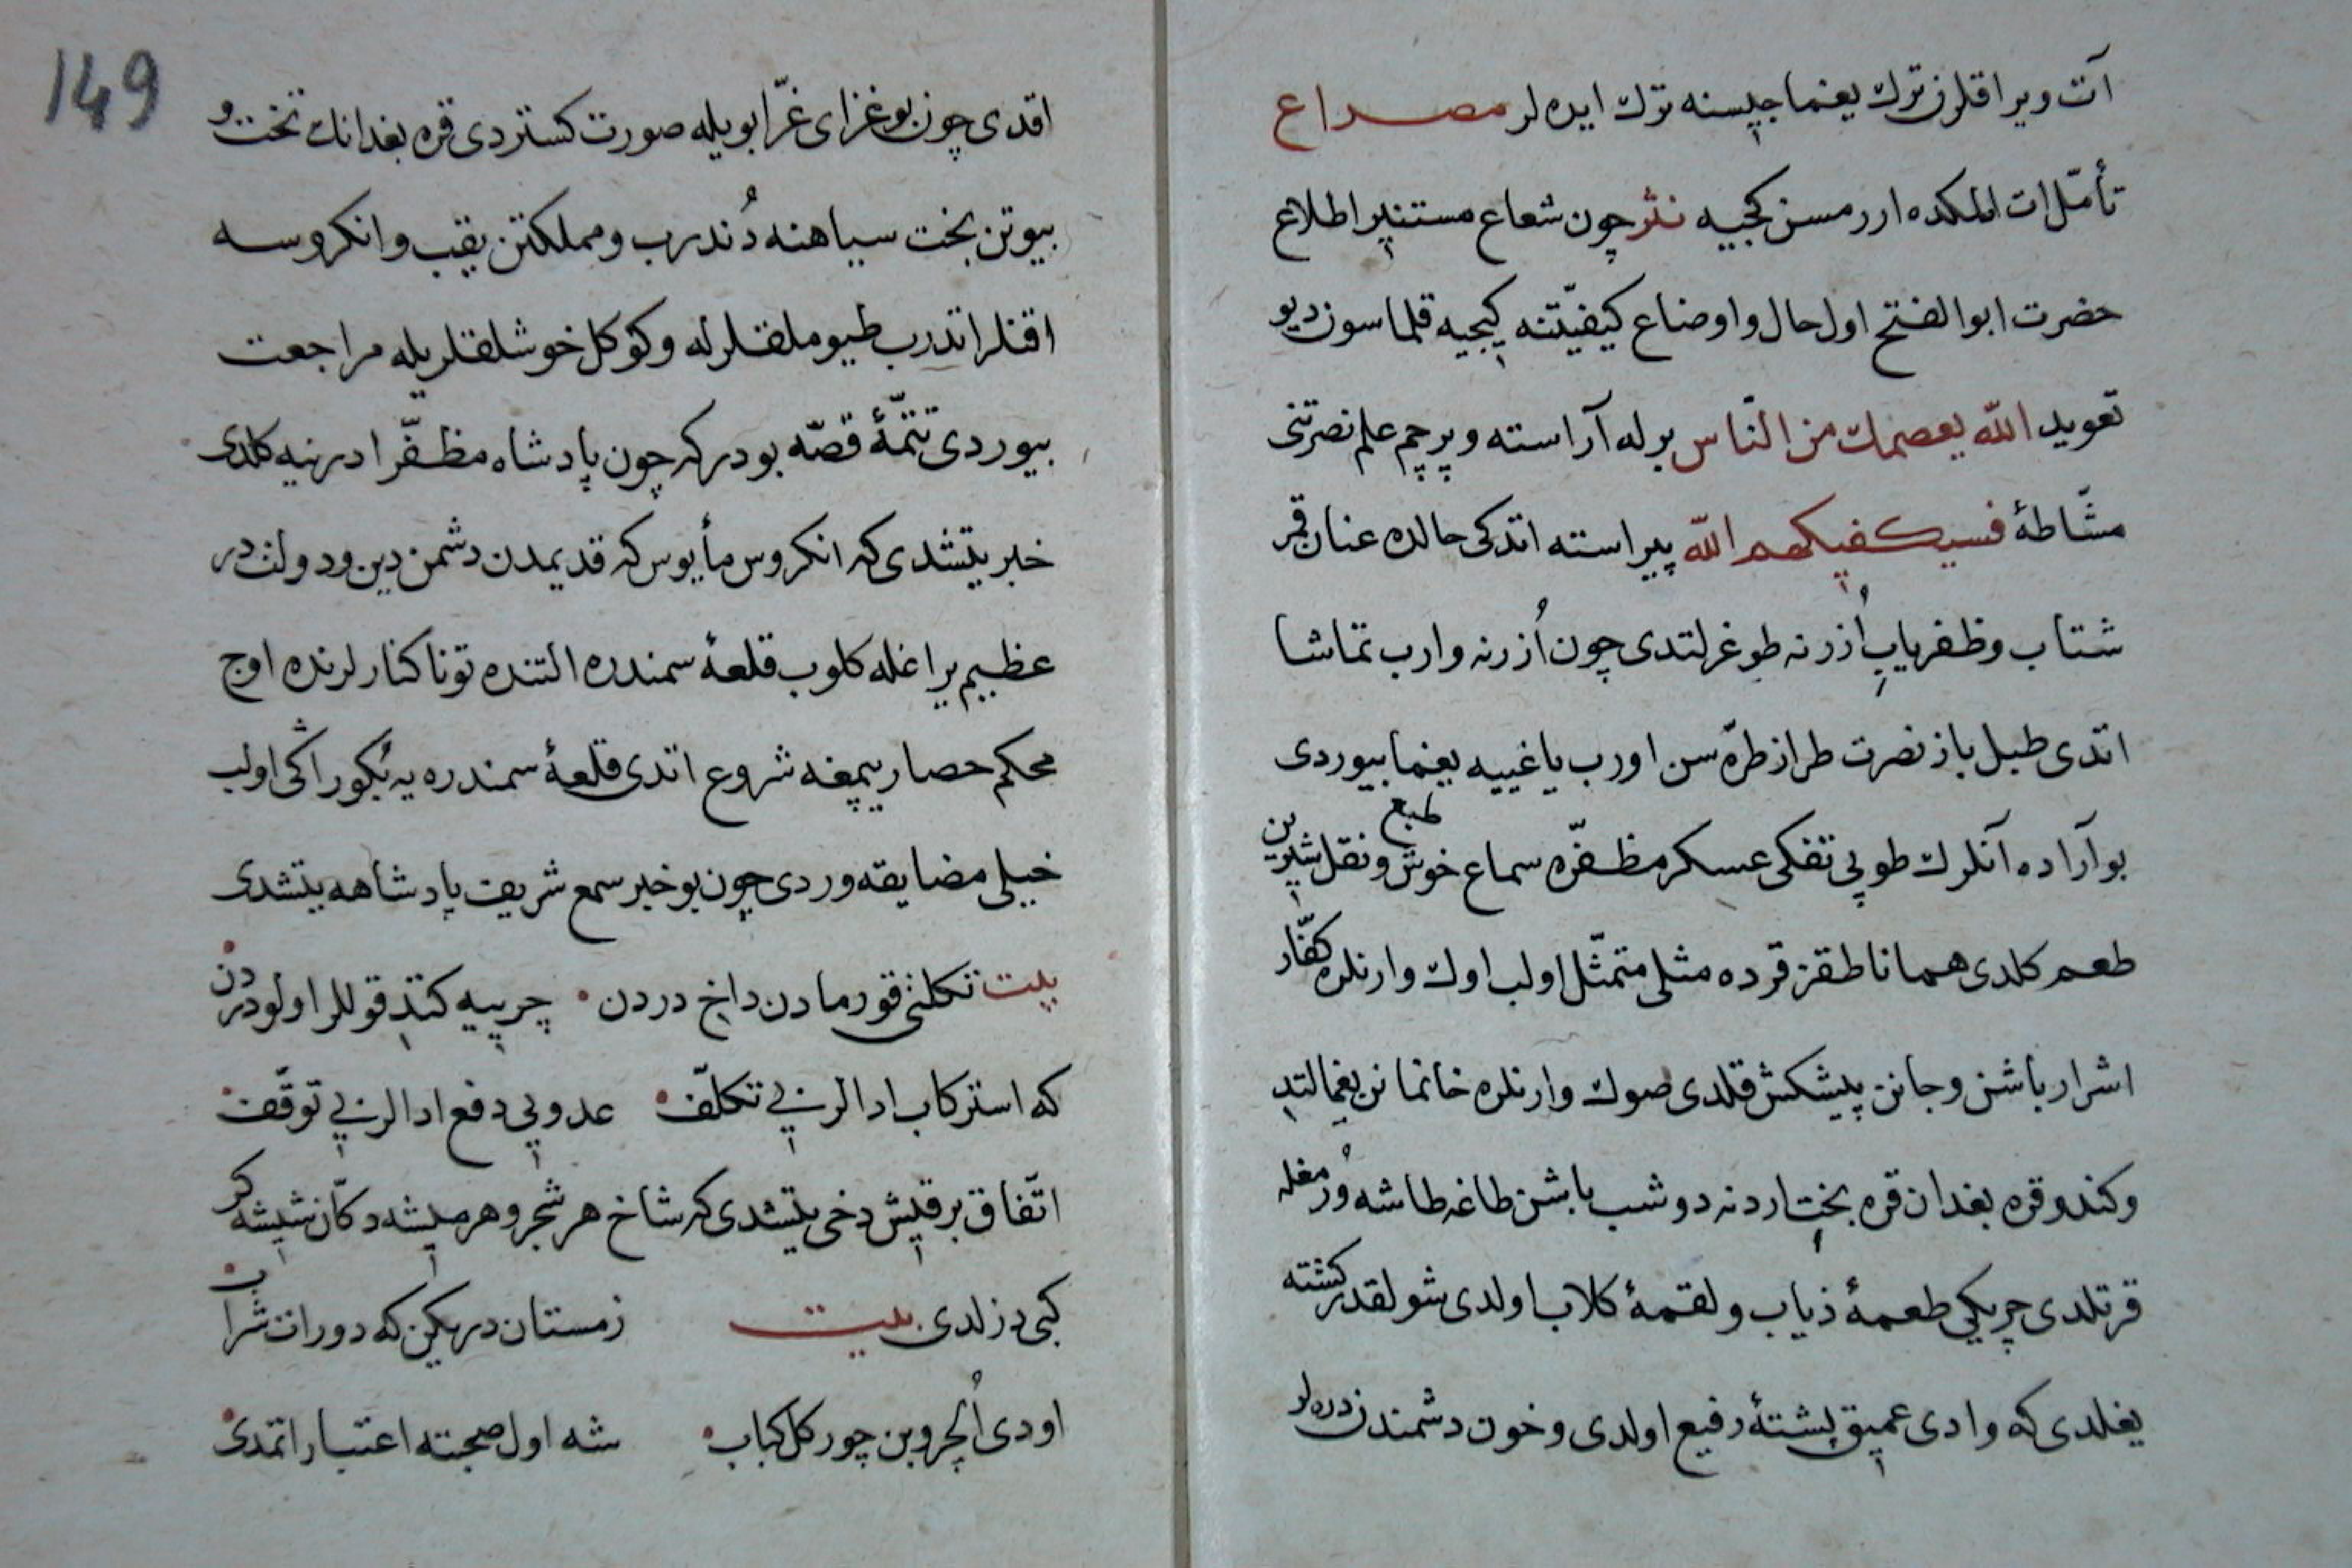 آت ویراقلرن ترك یغما جپسنه ترك ایده لر مصداع
تأمّل ات الملكده ارر مسن كجییه نثر چون شعاع مستنیر اطلاع
حضرت ابو الفتح اول حال و اوضاع كیفیّتنه كیجیه قلماسون دیو
تعوید الله یعصمك من النّاس برله آراسته و پرچم علم نصرتنی
مشّاطهٔ فسیكفیكهم الله پیراسته اتدكی حالده عنان قمر
شتاب و ظفریاب اُذرنه طوغرلتدی چون اُزرنه وارب تماشا
اتدی طبل باز نصرت طراز طرّه سن اورب یاغییه یغما بیوردی
بو آراده آنلرك طوپی تفكی عسكر مظفّره سماع خوش طبع و نقل شیرین
طعم كلدی همانا طقز قرده مثلی متمثّل اولب اوك وارنلره كفّار
اشرار باشن و جانن پیشكش قلدی صوك وارنلره خانمانن یغمالتدی
وكندو قره بغدان قره بخت اردنه دوشب باشن طاغه طاشه وُرمغله
قرتلدی چریكی طعمهٔ ذیاب و لقمهٔ كلاب اولدی شو لقدر كشته
یغلدی كه وادی عمیق پشتهٔ رفیع اولدی و خون دشمندن دره لر
149
اقدی چون بو غزای غرّا بویله صورت كستردی قره بغدانك تخت و
بیوتن بخت سیاهنه دُندرب و مملكتن یقیب و انكروسه
اقنلر اتدرب طیوملقلرله و كوكل خوشلقلریله مراجعت
بیوردی تتمّهٔ قصّه بودر كه چون پادشاه مظفّر ادرنیه كلدی
خبر یتشدی كه انكروس مأیوس كه قدیمدن دشمن دین و دولتدر
عظیم یراغله كلوب قلعهٔ سمندره التنده تونا كنارلرنده اوچ
محكم حصار یپمغه شروع اتدی قلعهٔ سمندره یه بُكوراشكی اولب
خیلی مضایقه وردی چون بو خبر سمع شریف پادشاهه یتشدی
بیت تكلنی قورمادن داخ دردن چریییه كتدی قوللر اولو دردن
كه استركاب ادالرنی بی تكلّف عدویی دفع ادالرنی بی توقّف
اتّفاق بر قیش دخی یتیشدی كه شاخ هر شجر و هر میشه دكّان شیشه كر
كبی دزلدی بیت زمستان دریكن كه دوران شراب
اودی اُلجروبن چور كل كباب شه اول صحبته اعتبار اتمدی